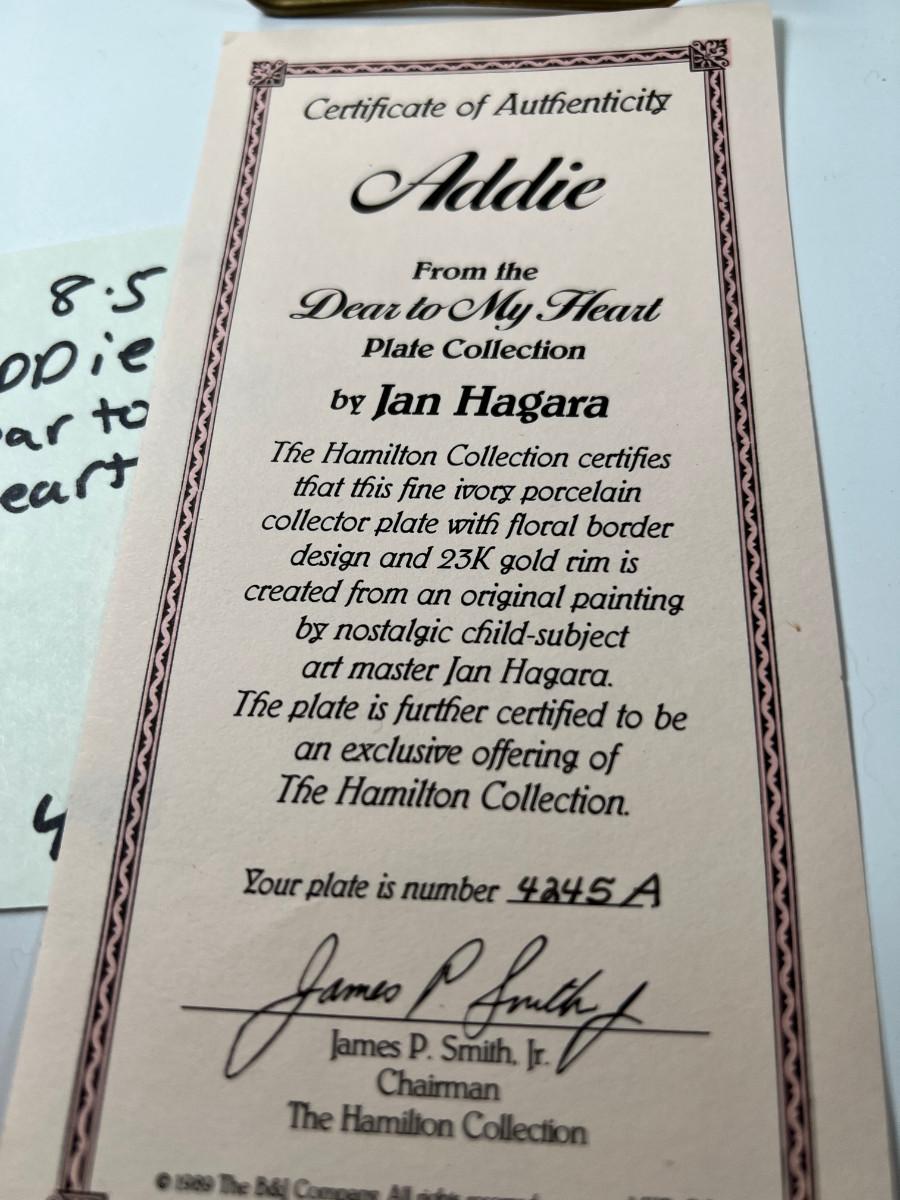 Certificate of Authenticity
Addie
From the
Dear to My Heart
Plate Collection
by Jan Hagara
The Hamilton Collection certifies
that this fine ivory porcelain
collector plate with floral border
design and 23K gold rim is
created from an original painting
by nostalgic child-subject
art master Jan Hagara.
The plate is further certified to be
an exclusive offering of
The Hamilton Collection.
Your plate is number 4245 A
James P. Smith, Jr.
James P. Smith, Jr.
Chairman
The Hamilton Collection
© 1989 The B&J Company. All rights reserved.
8.5
DDie
ar to
eart
4